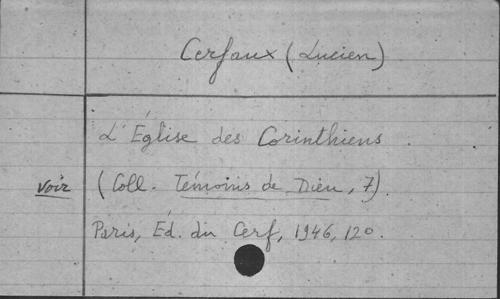 Cerfaux (Lucien)
L'Église des Corinthiens.
voir (Coll. Témoins de Dieu, 7).
Paris, Éd. du Cerf, 1946, 120.